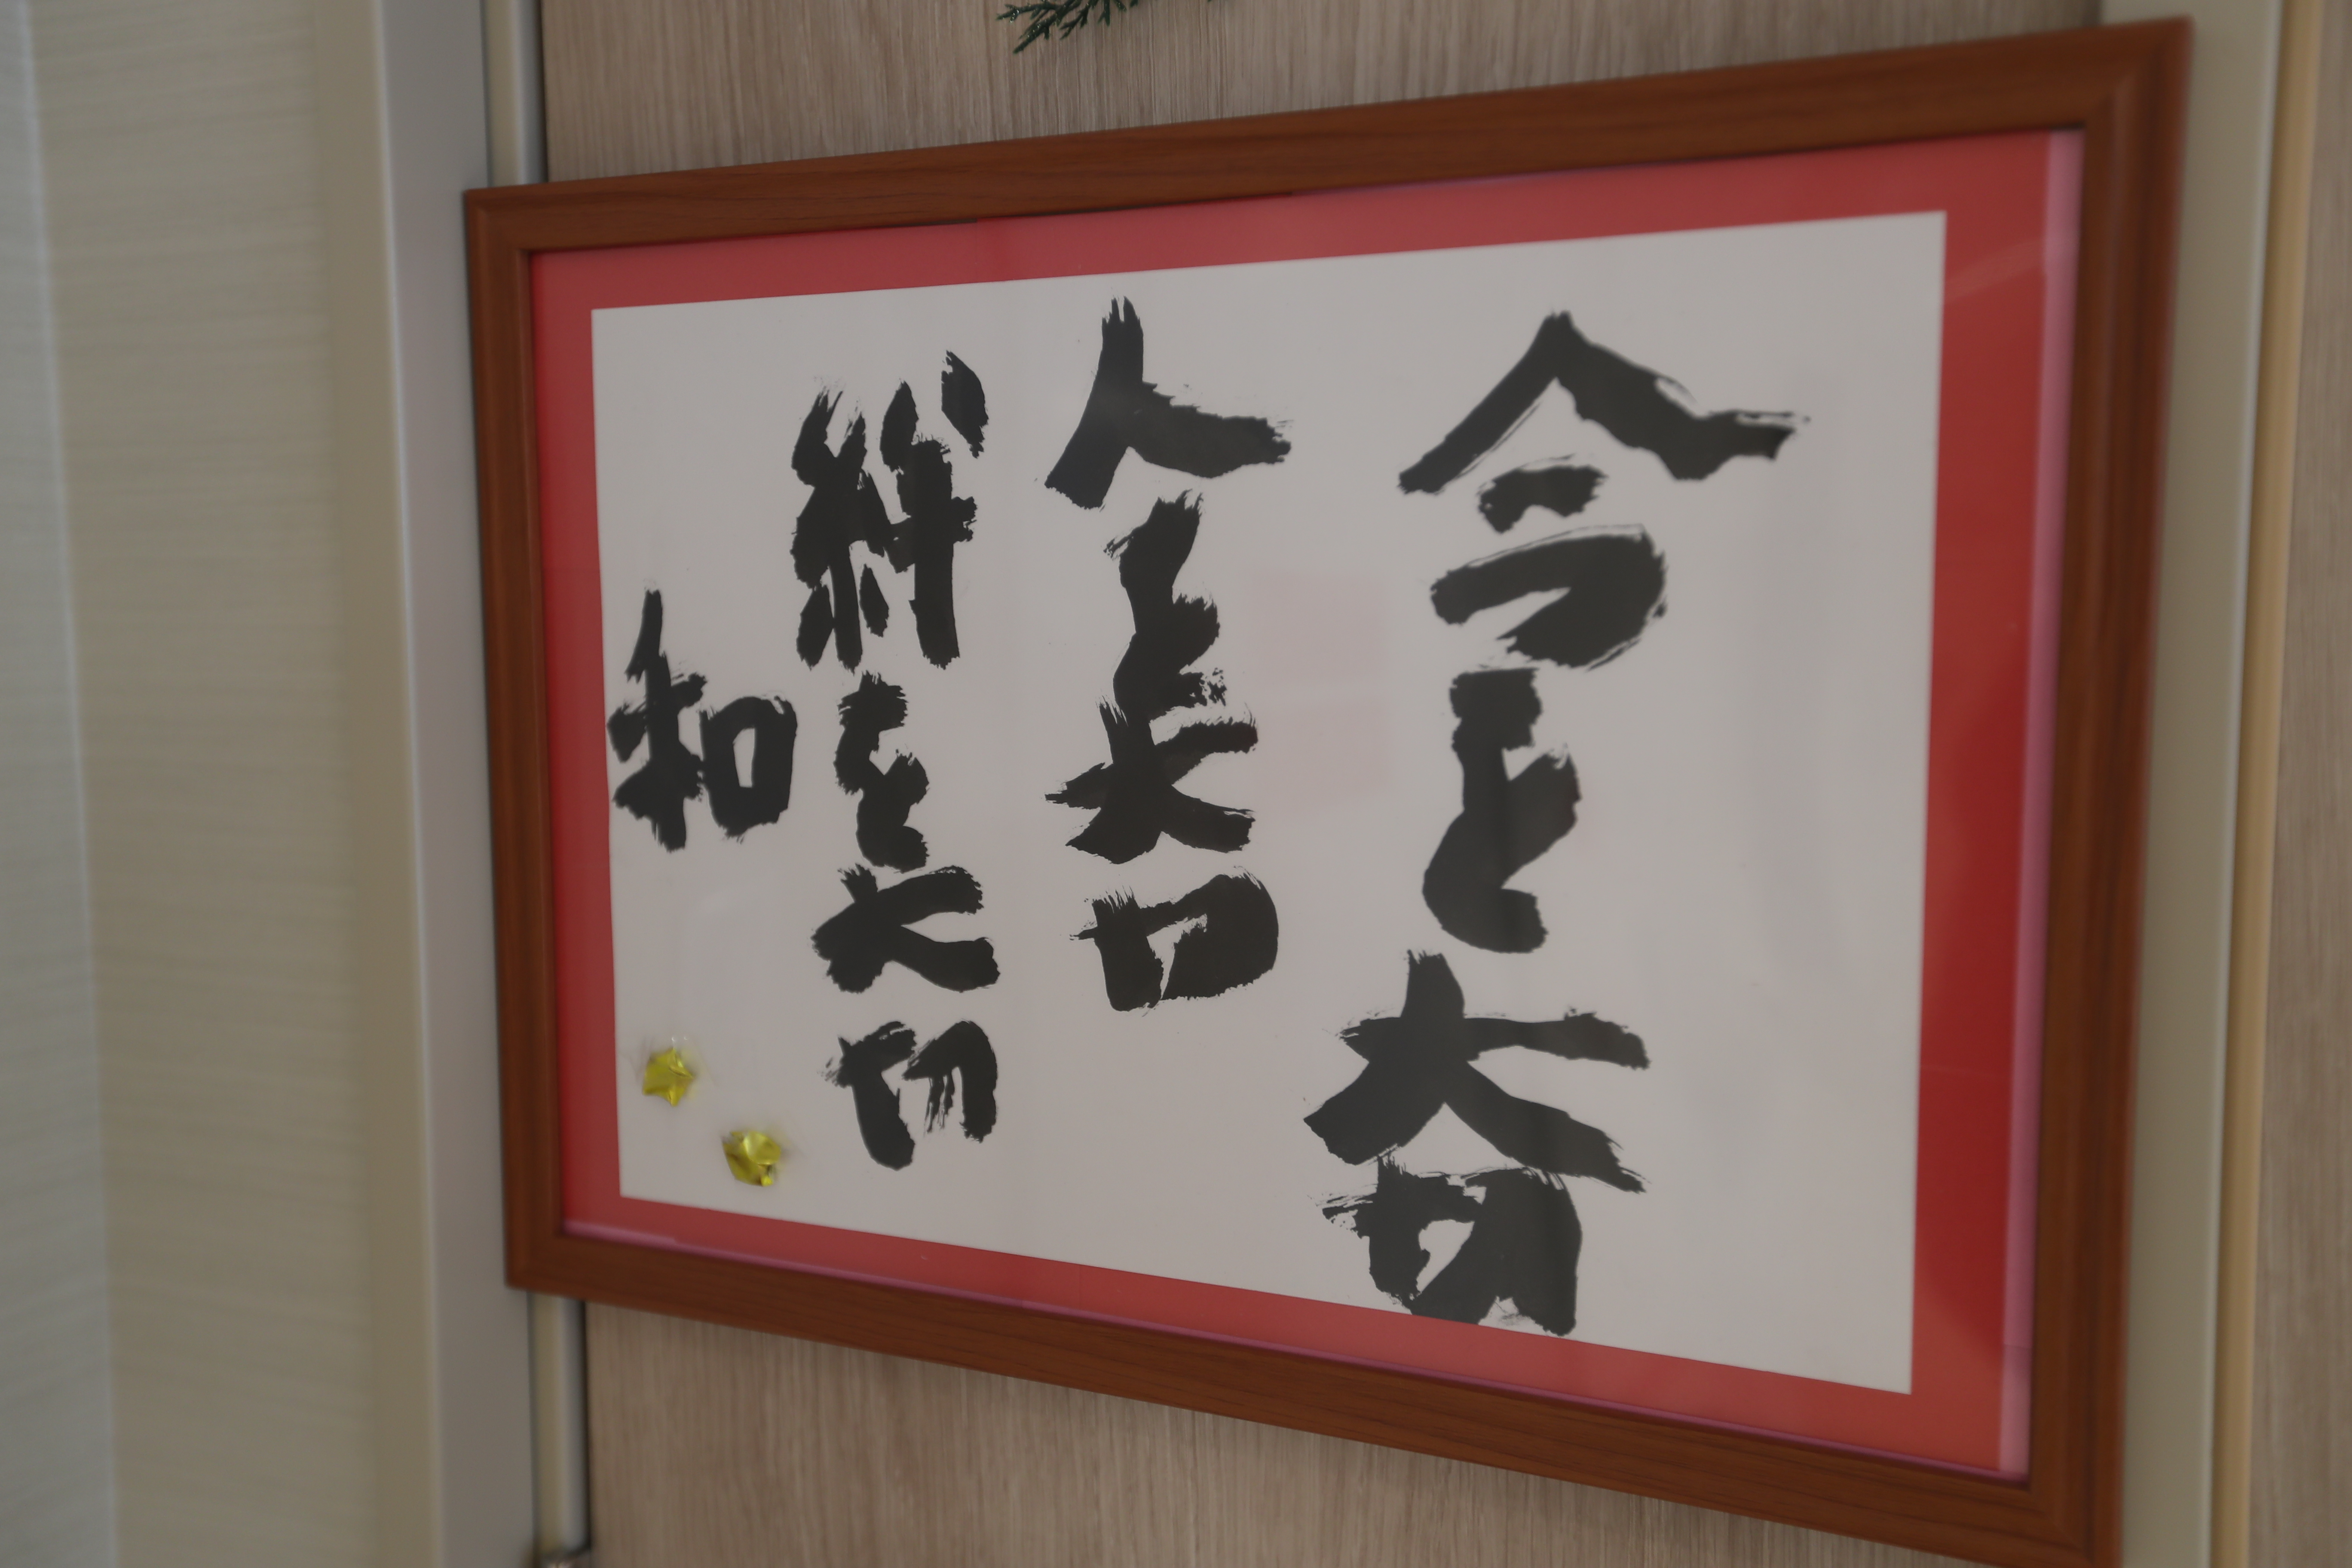 今を大切
人を大切
絆を大切
和